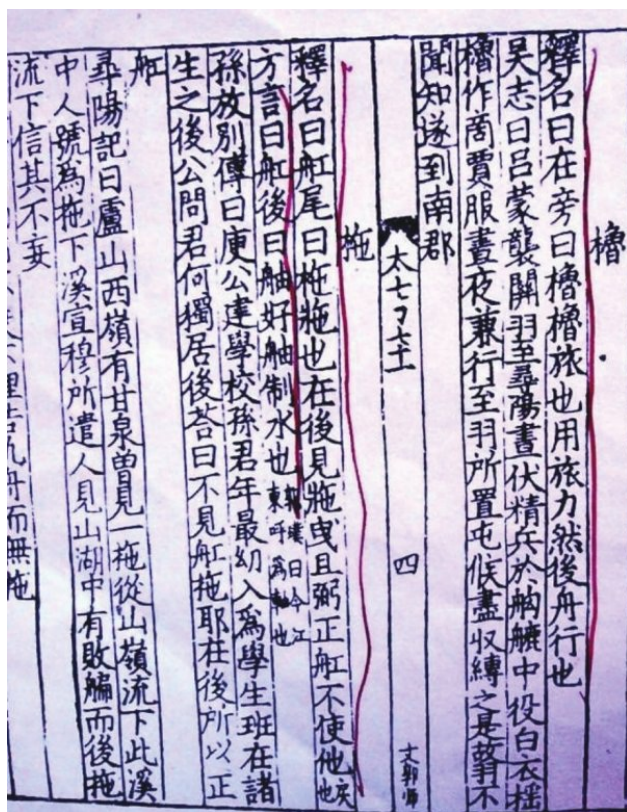 櫓
釋名曰在旁曰櫓櫓旅也用旅力然後舟行也
吳志曰呂蒙襲關羽至尋陽晝伏精兵於中役白衣揺
櫓作啇賈服晝夜兼行至羽所置屯候盡収縛之是故羽不
聞知遂到南郡
太七
四
柂
釋名曰舡尾曰柂柂拖也在後見拖曳且弼正舡不使他戾也
方言曰舡後曰舳舳制水也郭璞曰今江東呼為軸也
孫放別傳曰庾公建學校孫君年最幼入爲學生班在諸
生之後公問君何獨居後荅曰不見舡拖耶在後所以正
舡
尋陽記曰廬山西嶺有甘泉曾見一拖從山嶺流下此溪
中人號為拖下溪宣穆所遣人見山湖中有敗艑而後拖
流下信其不妄
舟而無拖